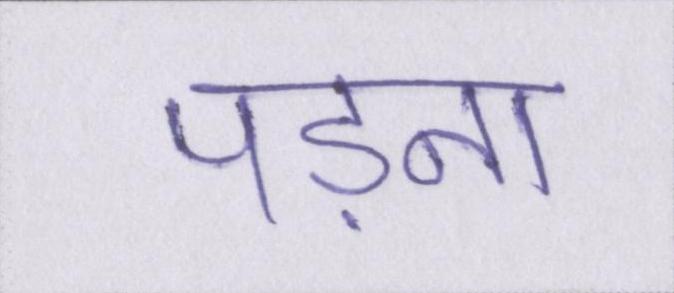 पड़ना